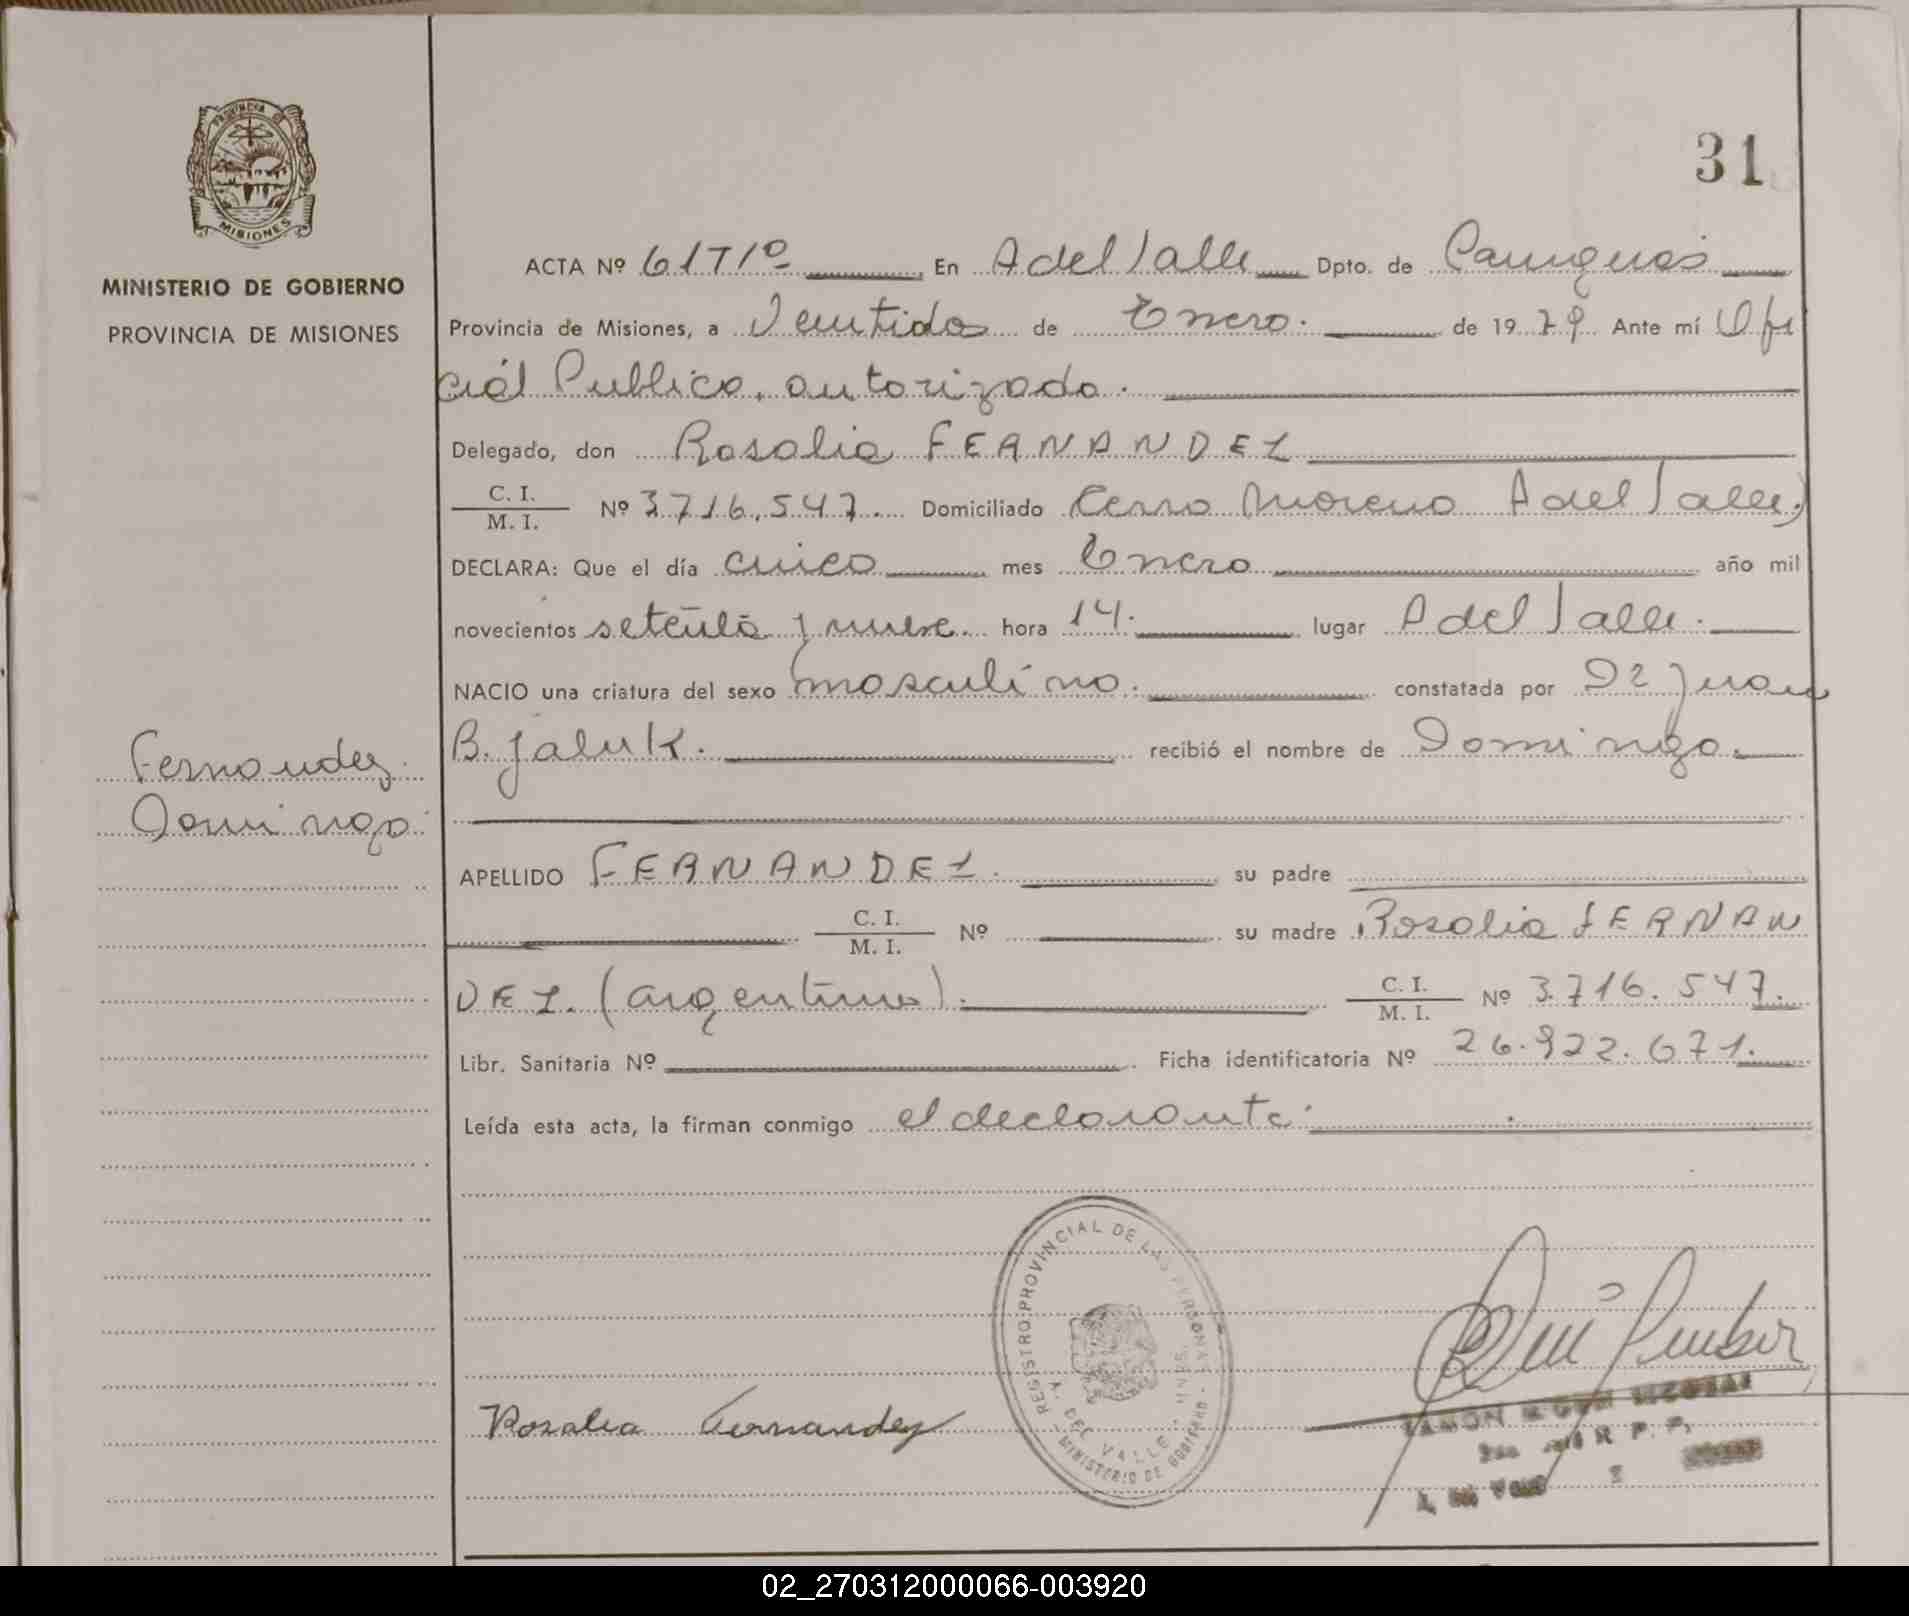 PROVINCIA DE
MISIONES
MINISTERIO DE GOBIERNO
PROVINCIA DE MISIONES
Fernandez
Domingo
31
ACTA Nº 6171º En A del Valle Dpto. de Cainguas
Provincia de Misiones, a Veintidos de Enero. de 1979 Ante mí Ofi
cial Publico, autorizado.
Delegado, don Rosalia FERNANDEZ
C. I.
M. I. Nº 3.716.547. Domiciliado Cerro Moreno A del Valle,
DECLARA: Que el día cinco mes Enero año mil
novecientos setenta y nueve. hora 14. lugar A del Valle.
NACIO una criatura del sexo masculino. constatada por Dr Juan
B. Jaluk. recibió el nombre de Domingo.
APELLIDO FERNANDEZ. su padre
C. I.
M. I. Nº su madre Rosalia FERNAN
DEZ. (argentina). C. I.
M. I. Nº 3.716.547.
Libr. Sanitaria Nº Ficha identificatoria Nº 26.922.671.
Leída esta acta, la firman conmigo el declarante.
REGISTRO PROVINCIAL DE LAS PERSONAS
A. DEL VALLE
MINISTERIO DE GOBIERNO
Rosalia Fernandez
RAMÓN
02_270312000066-003920